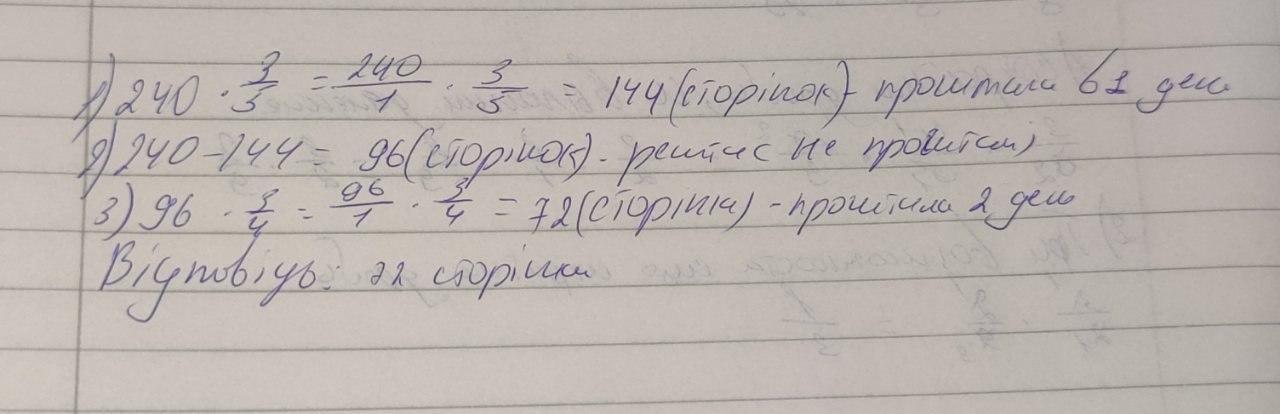 1) 240 · 3/5 = 240/1 · 3/5 = 144 (сторінок) - прочитала в 1 день
2) 240 - 144 = 96 (сторінок) - решта не прочитані
3) 96 · 3/4 = 96/1 · 3/4 = 72 (сторінки) - прочитала 2 день
Відповідь: 72 сторінки